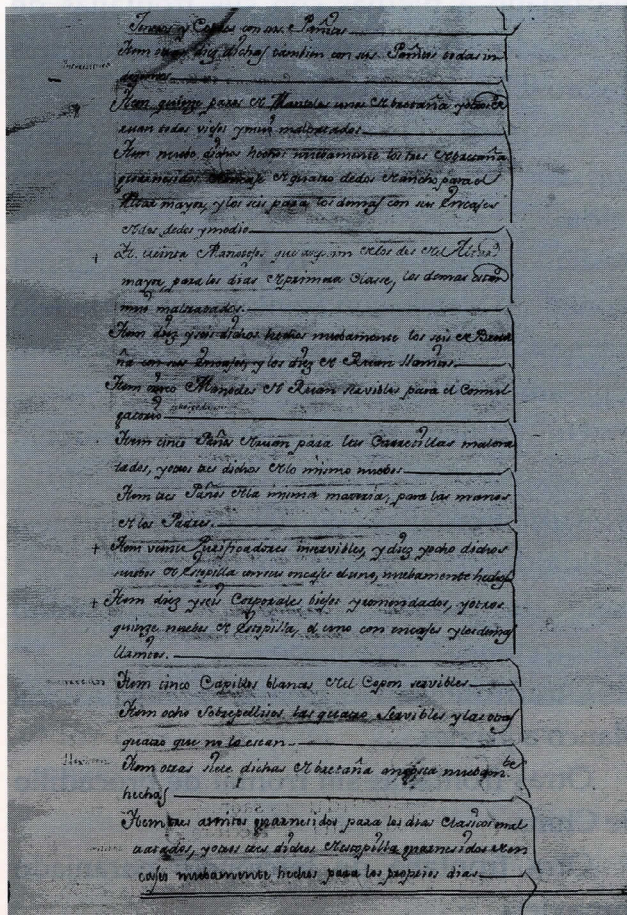 Torres y Cortes con sus Pañitos
Item otras diez dichas tambien con sus Pañitos todas in
dezentes
Item quinze pares de Manteles unos de bretaña y otros de
ruan todos viejos y mui maltratados
Item nuebe dichos hechos nuebamente los tres de bretaña
guarnesidos de encaje de quatro dedos de ancho para el
Altar mayor, y los seis para los demas con sus Encajes
de dos dedos y medio
It. treinta Manotejos que sirven los dos del Altar
mayor, para los dias de primera Classe, los demas estan
mui maltratados.
Item diez y seis dichos hechos nuebamente los seis de Breta
ña con sus Encajes, y los diez de Ruan llanitos
Item cinco Manteles de Ruan servibles para el Comul
gatorio
Item cinco Paños de ruan para las Credencillas maltra
tados, y otros tres dichos de lo mismo nuebos
Item tres Paños de la misma materia, para las manos
de los Padres.
+ Item veinte Purificadores inservibles, y diez y ocho dichos
nuebos de Estopilla con sus encajes de uno, nuebamente hechos
+ Item diez y seis Corporales biejos y remendados, y otros
quinze nuebos de Estopilla, el uno con encajes y los demas
llanitos.
Item cinco Capillos blancos del Copon servibles
Item ocho Sobrepellises las quatro Servibles y las otras
quatro que no lo estan
Item otras siete dichas de bretaña angosta nuebamte
hechas
Item tres amitos guarnesidos para los dias Clasicos mal
tratados, y otros tres dichos de estopilla guarnesidos de en
cajes nuebamente hechos para los propios dias